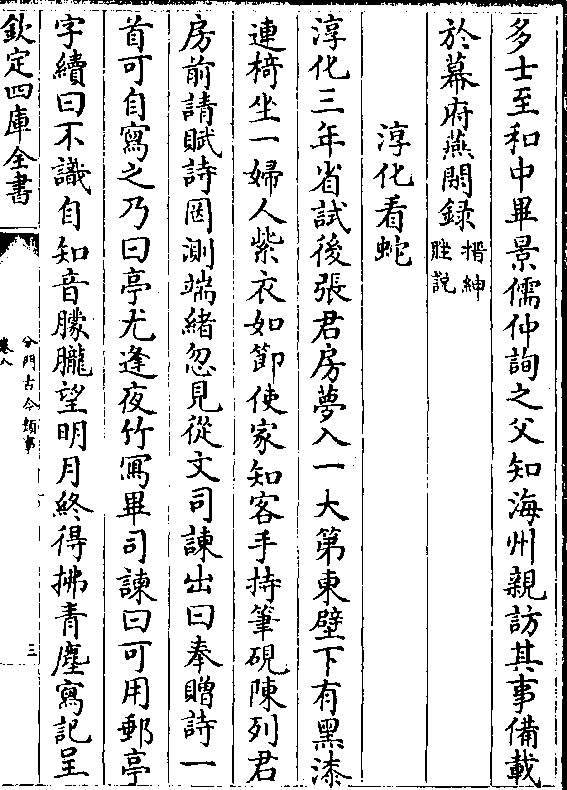 多士至和中畢景儒仲詢之父知海州親訪其事備載
於幕府燕閒録搢紳脞説
淳化看蛇
淳化三年省試後張君房夢入一大第東壁下有黑漆
連椅坐一婦人紫衣如節使家知客手持筆硯陳列君
房前請賦詩罔測端緒忽見從文司諫出曰奉贈詩一
首可自寫之乃曰亭尤逢夜竹寫畢司諫曰可用郵亭
字續曰不識自知音朦朧望明月終得拂青塵寫記呈
欽定四庫全書
分門古今類事
卷八
三